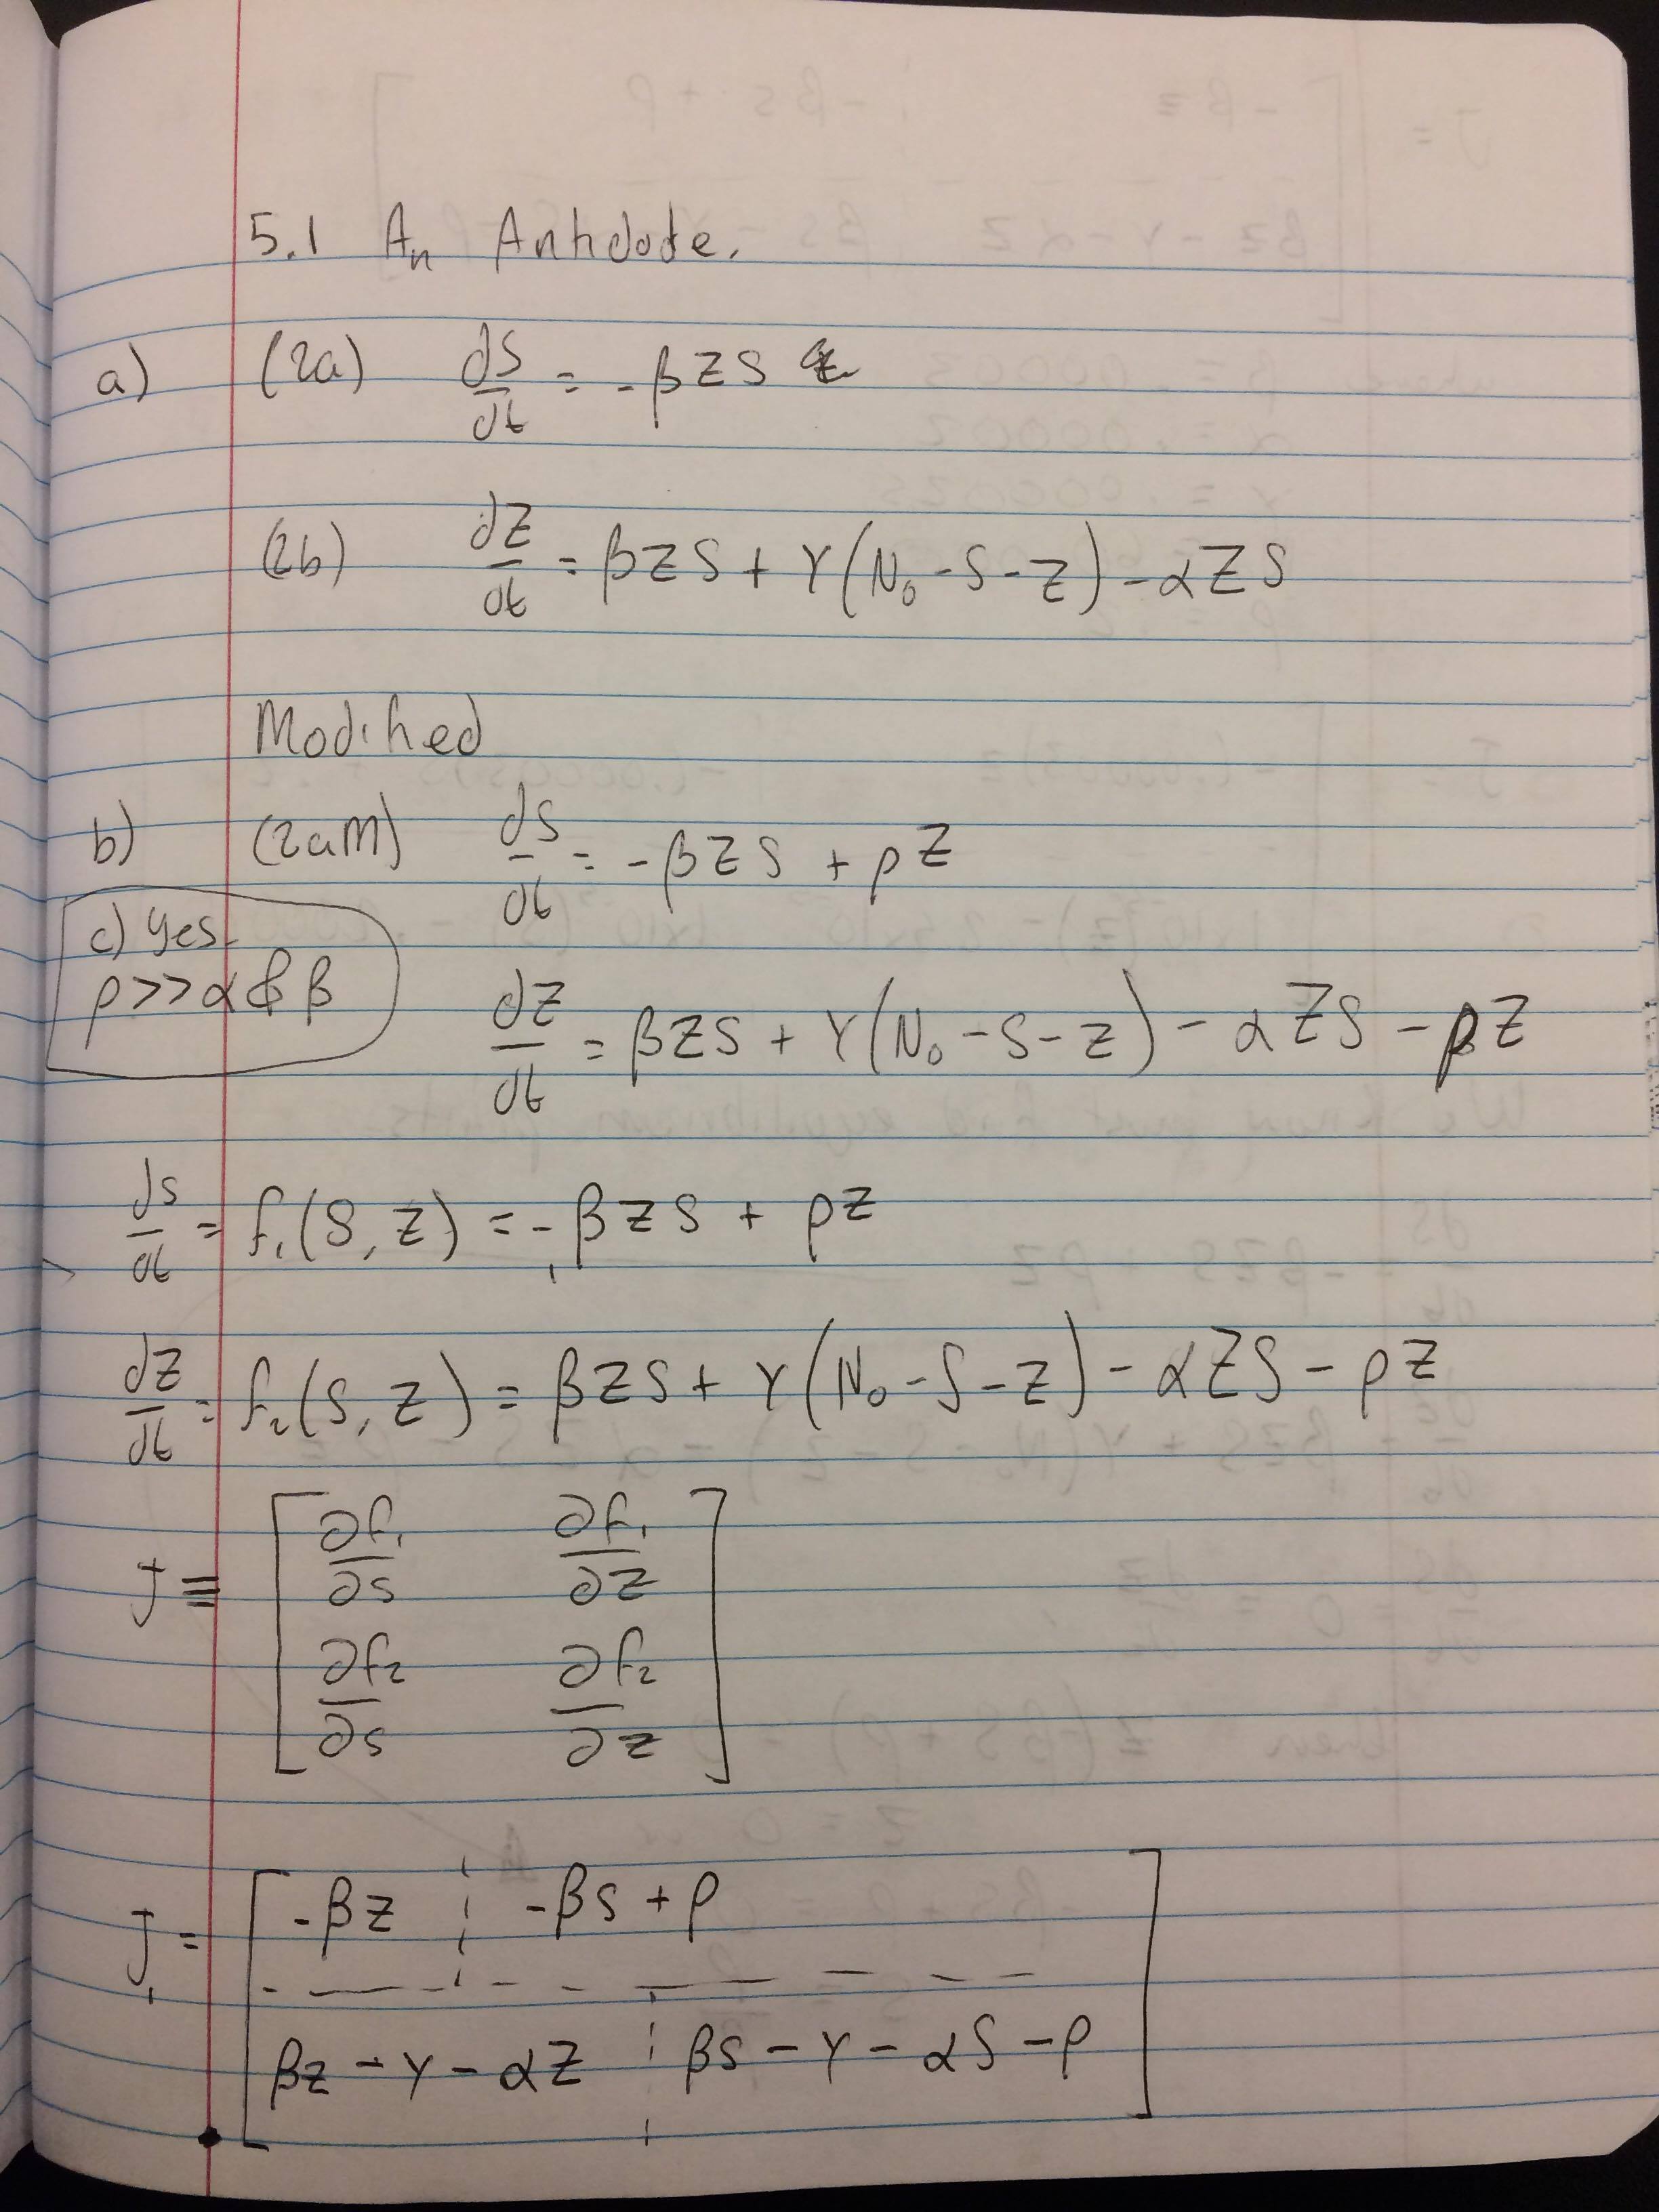 5.1 An Antidote.
a) (2a) dS/dt = -βZS
(2b) dZ/dt = βZS + γ(N₀-S-Z) - αZS
Modified
b) (2aM) dS/dt = -βZS + ρZ
c) Yes
ρ>>α & β
dZ/dt = βZS + γ(N₀-S-Z) - αZS - ρZ
dS/dt = f₁(S, Z) = -βZS + ρZ
dZ/dt = f₂(S, Z) = βZS + γ(N₀-S-Z) - αZS - ρZ
J ≡ [ ∂f₁/∂S ∂f₁/∂Z
∂f₂/∂S ∂f₂/∂Z ]
J = [ -βZ ¦ -βS + ρ
βZ - γ - αZ ¦ βS - γ - αS - ρ ]